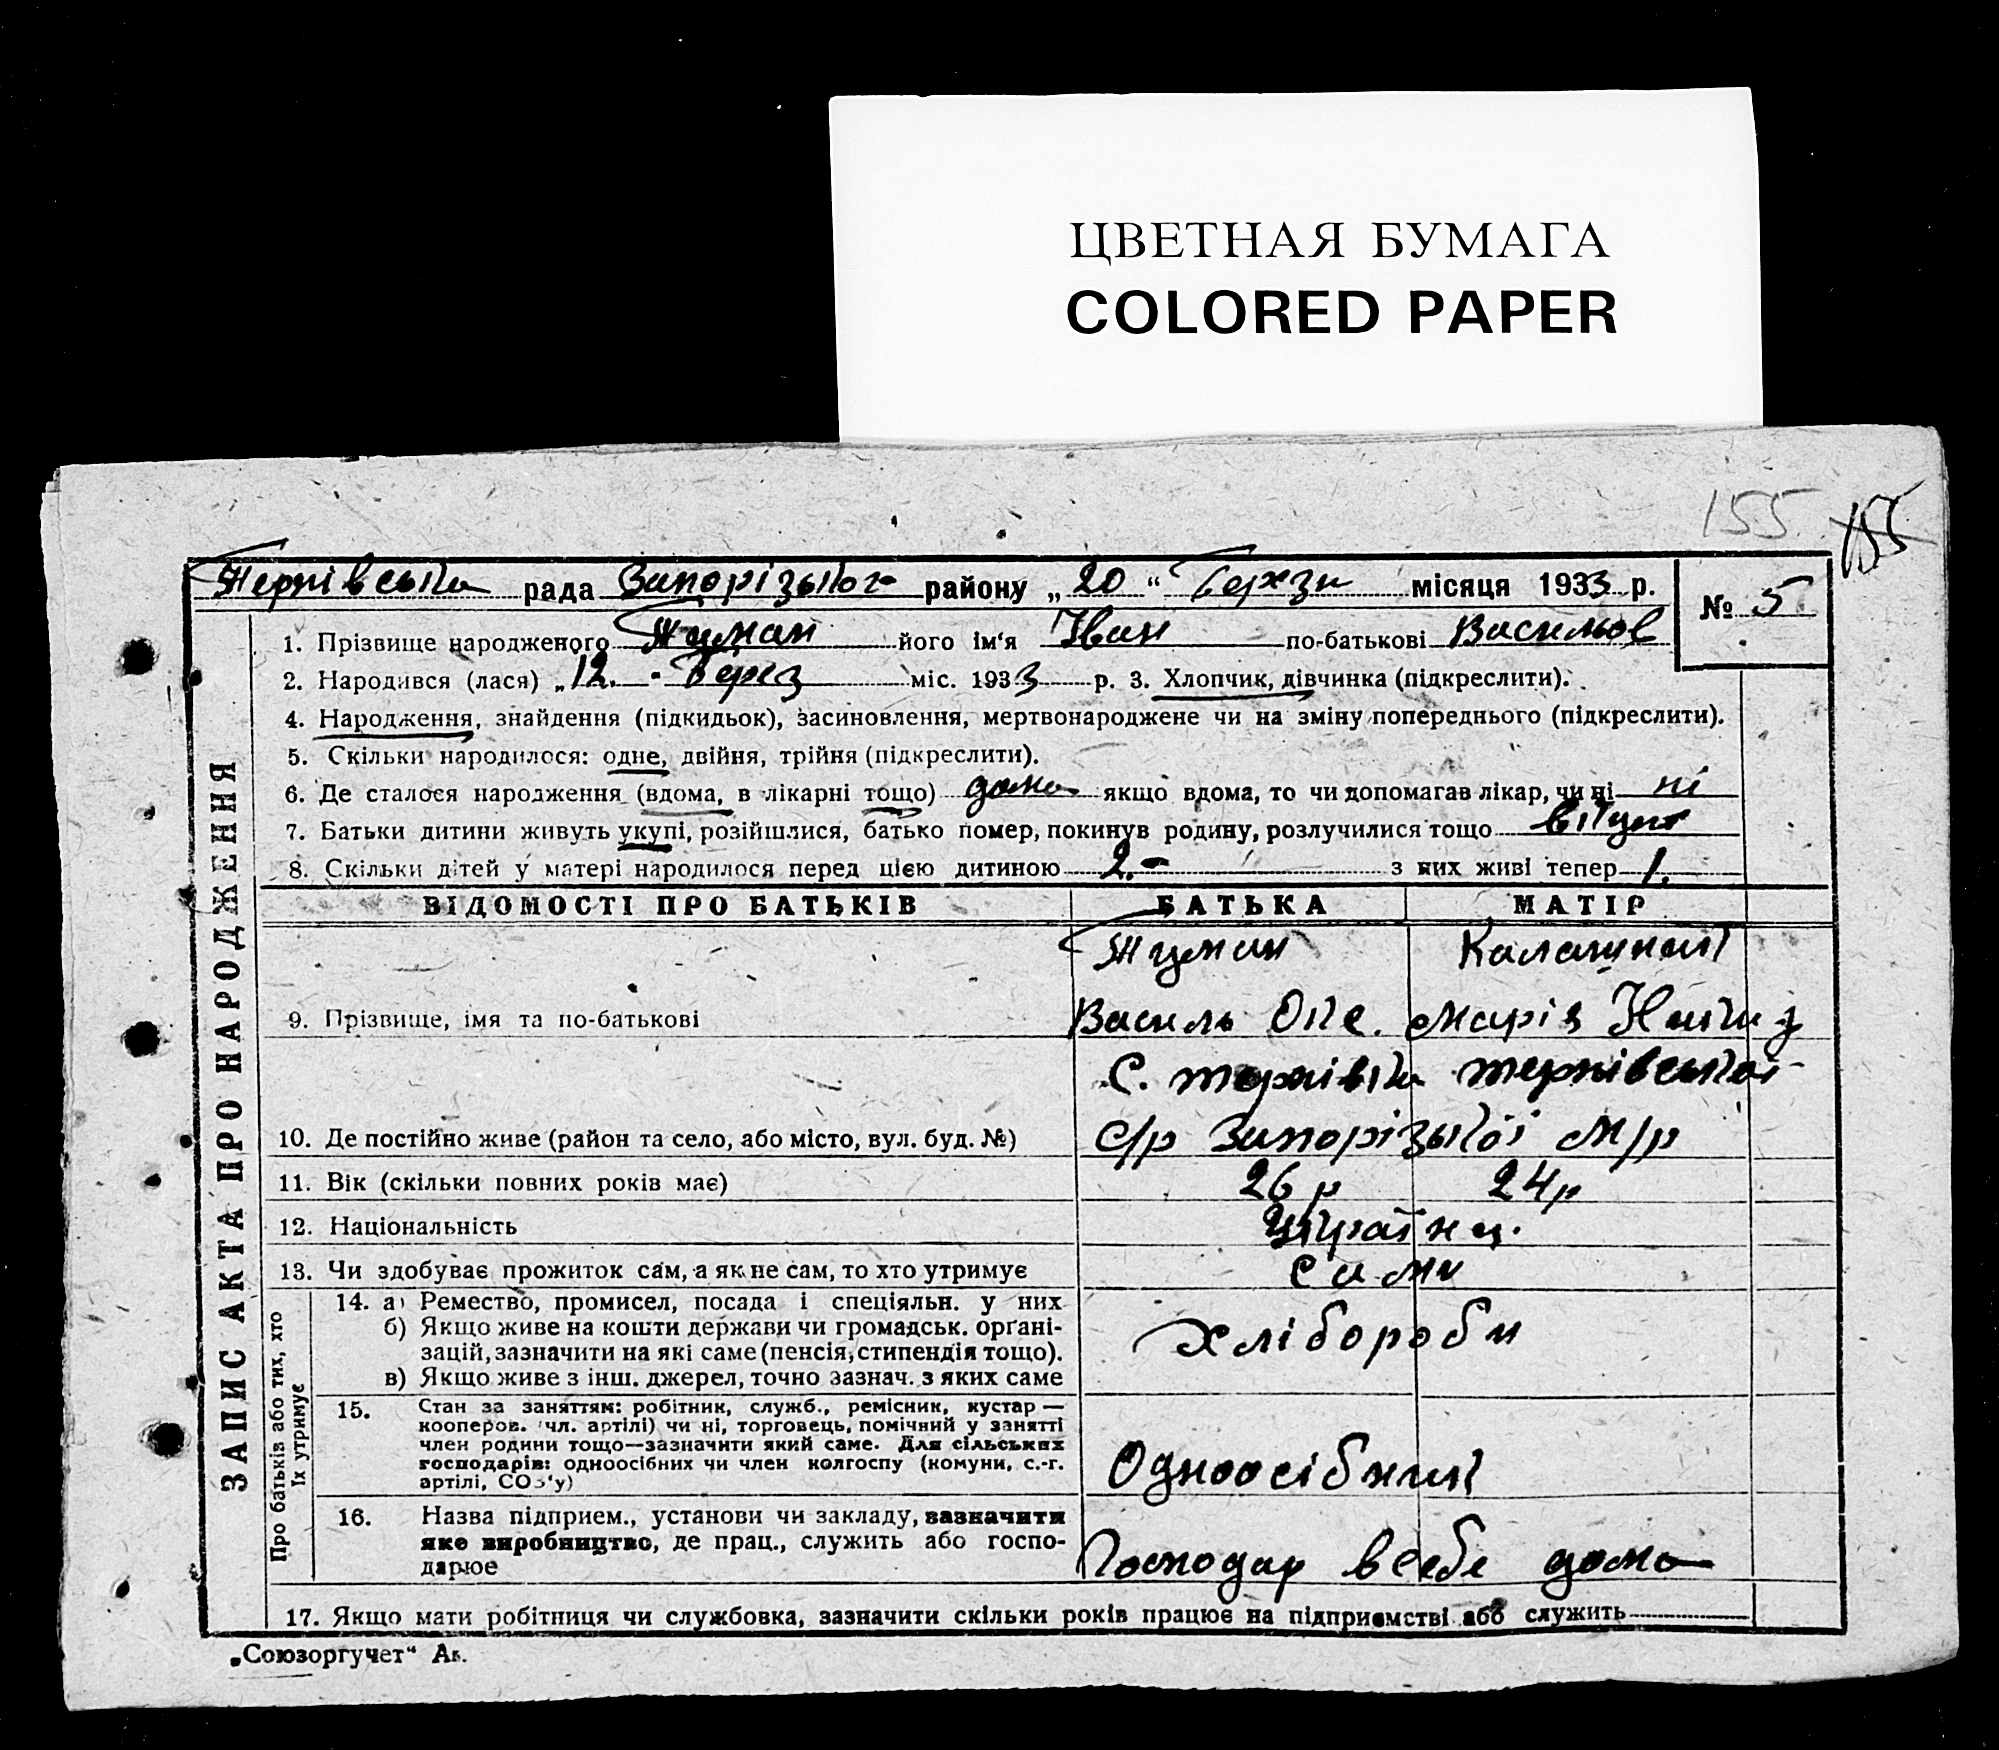 ЦВЕТНАЯ БУМАГА
COLORED PAPER
155 155
Тернівська рада Запорізького району „20“ Березн місяця 1933 р. № 5
1. Прізвище народженого Туман його ім‘я Іван по-батькові Васильов
2. Народився (лася) „12. Берез міс. 1933 р. 3. Хлопчик, дівчинка (підкреслити).
4. Народження, знайдення (підкидьок), засиновлення, мертвонароджене чи на зміну попереднього (підкреслити).
5. Скільки народилося: одне, двійня, трійня (підкреслити).
6. Де сталося народження (вдома, в лікарні тощо) дома якщо вдома, то чи допомагав лікар, чи ні ні
7. Батьки дитини живуть укупі, розійшлися, батько помер, покинув родину, розлучилися тощо
8. Скільки дітей у матері народилося перед цією дитиною 2.- з них живі тепер 1.
ВІДОМОСТІ ПРО БАТЬКІВ БАТЬКА МАТІР
Туман
9. Прізвище, імя та по-батькові Василь Марія
с. Тернівка Тернівської
10. Де постійно живе (район та село, або місто, вул. буд. №) с/р Запорізької м/р
11. Вік (скільки повних років має) 26 р 24 р
12. Національність Українц.
13. Чи здобуває прожиток сам, а як не сам, то хто утримує сами
14. а) Ремество, промисел, посада і спеціяльн. у них
б) Якщо живе на кошти держави чи громадськ. орґані-
зацій, зазначити на які саме (пенсія, стипендія тощо). Хлібороби
в) Якщо живе з інш. джерел, точно зазнач. з яких саме
15. Стан за заняттям: робітник, служб., ремісник, кустар —
кооперов. (чл. артілі) чи ні, торговець, помічний у занятті
член родини тощо—зазначити який саме. Для сільських
господарів: одноосібних чи член колгоспу (комуни, с.-г. Одноосібники
артілі, СОЗ‘у)
16. Назва підприєм., установи чи закладу, зазначити
яке виробництво, де прац., служить або госпо-
дарює Господар в себе дома
17. Якщо мати робітниця чи службовка, зазначити скільки років працює на підприємстві або служить
ЗАПИС АКТА ПРО НАРОДЖЕННЯ
Про батьків або тих, хто
їх утримує
„Союзоргучет“